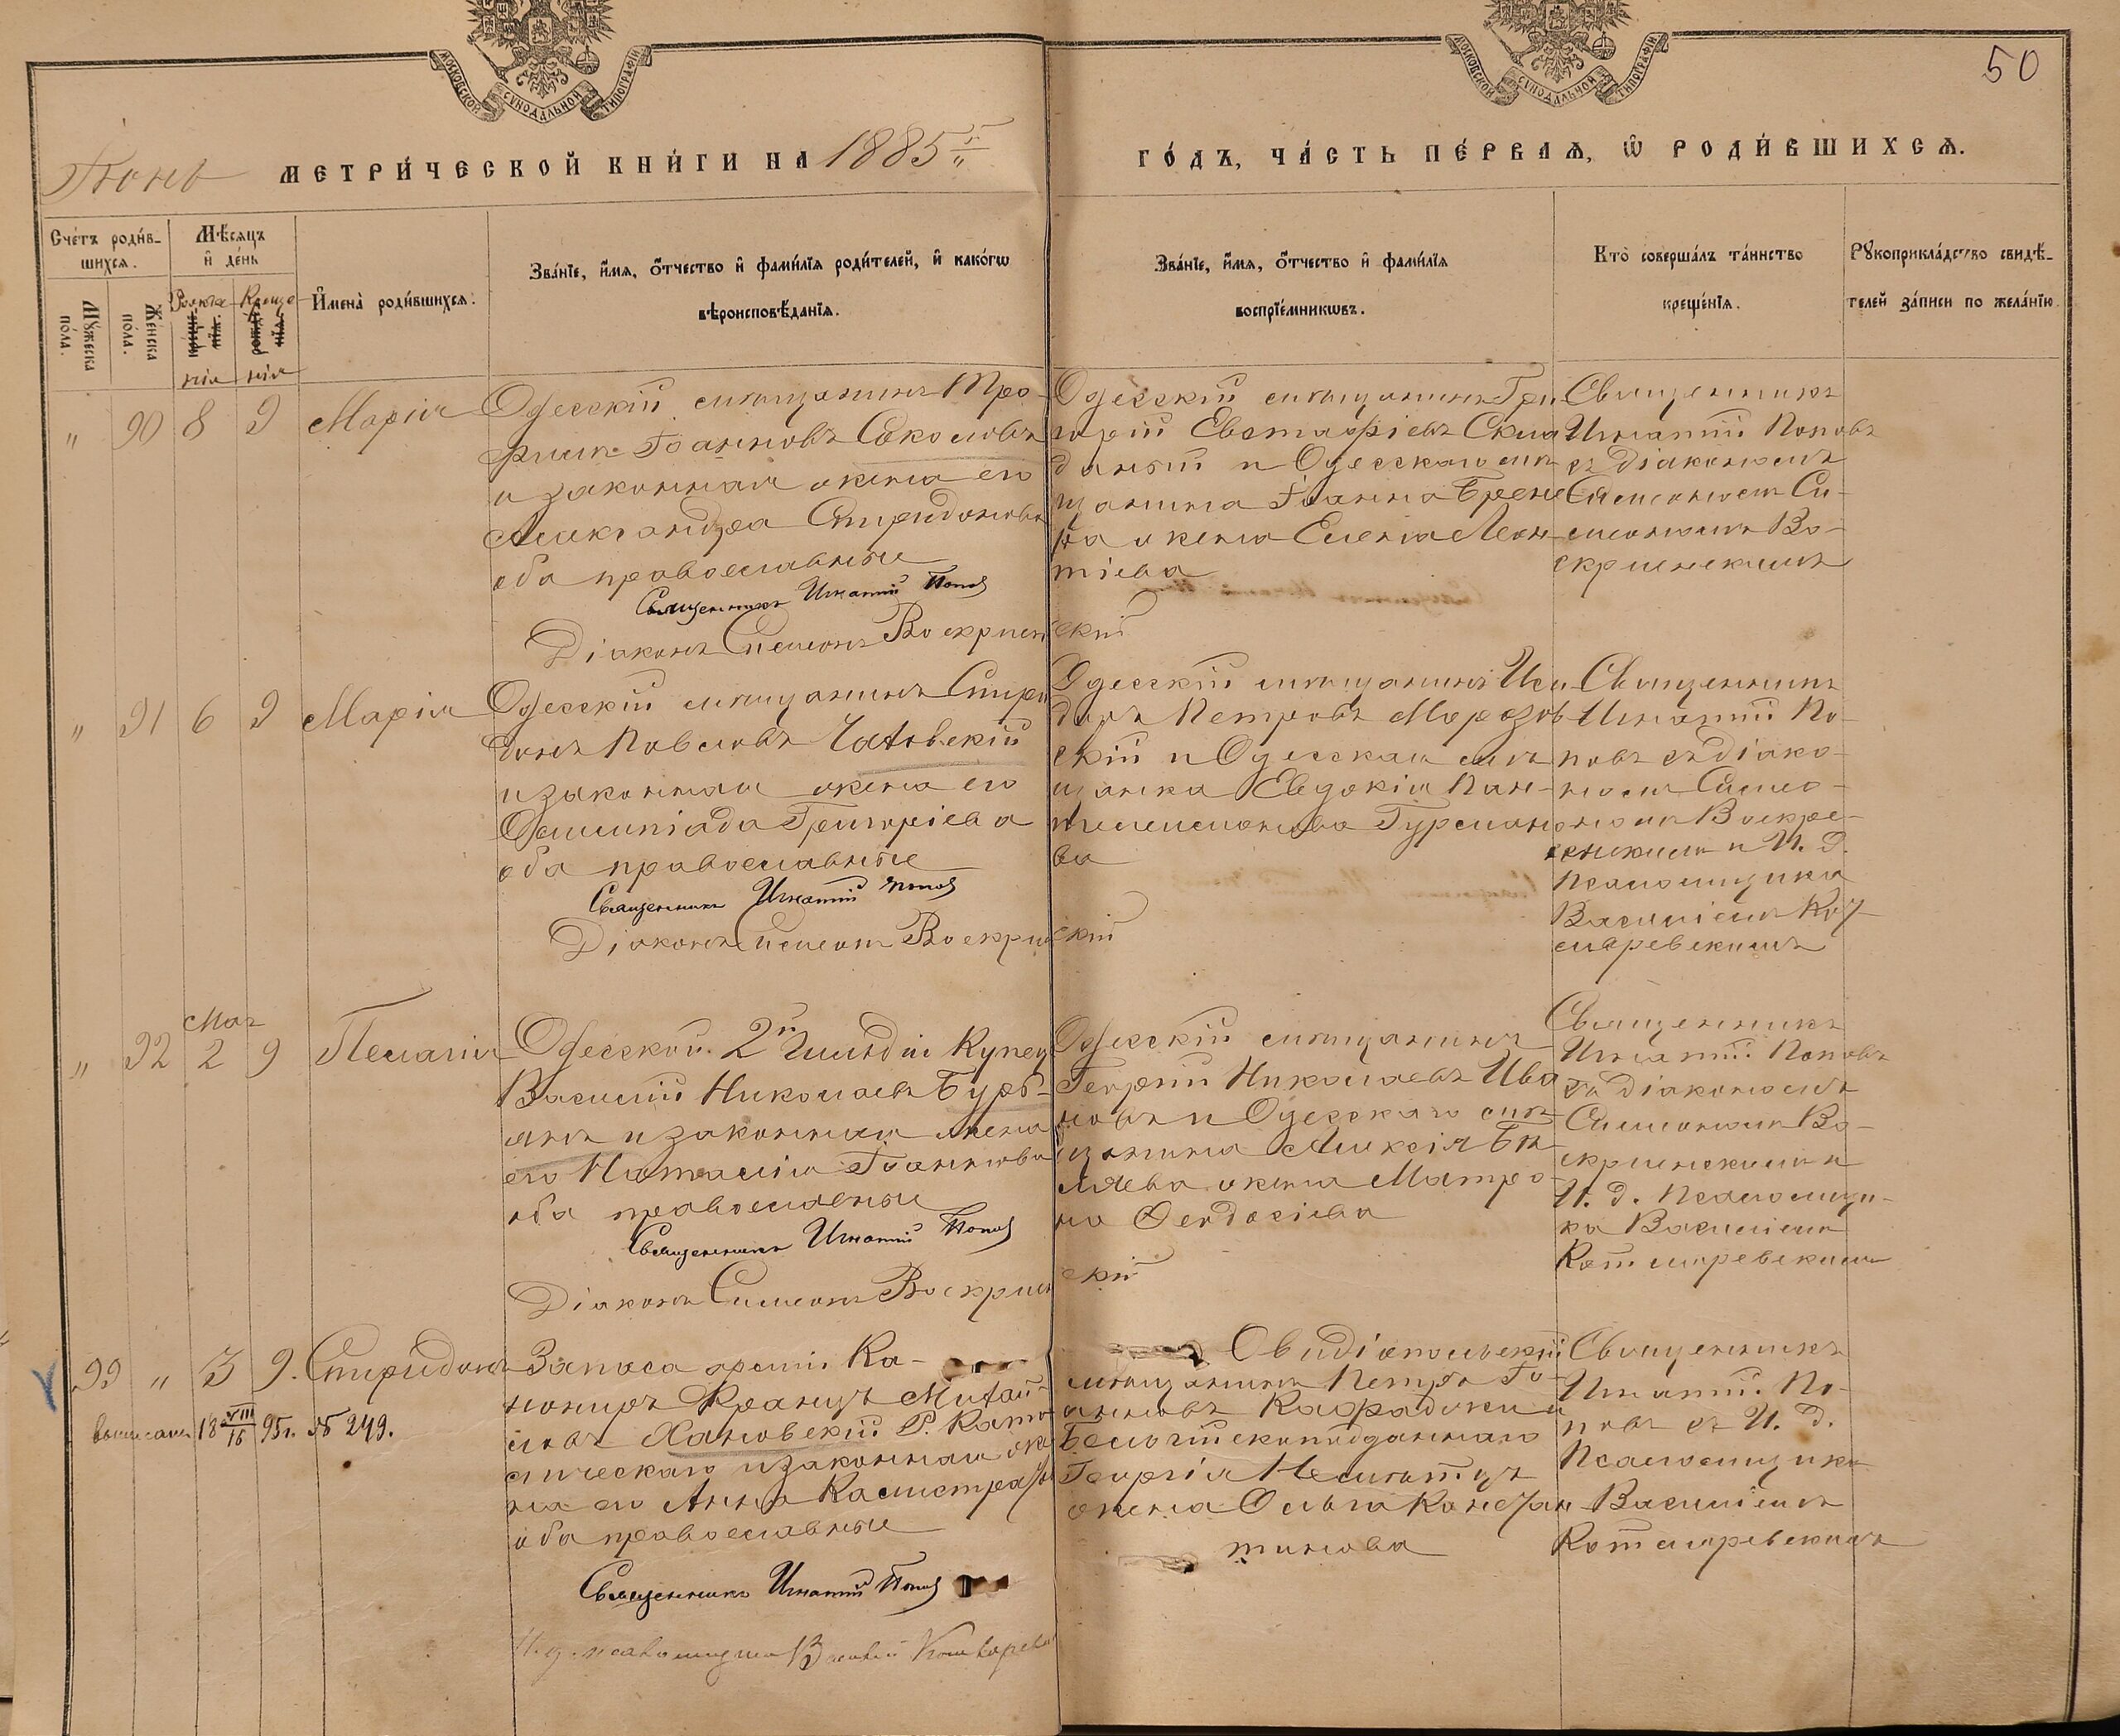 МОСКОВСКОЙ СѴНОДАЛЬНОЙ ТИПОГРАФІИ
МОСКОВСКОЙ СѴНОДАЛЬНОЙ ТИПОГРАФІИ
50
Іюнь МЕТРИ́ЧЕСКОЙ КНИ́ГИ НА 1885 г.
ГО́ДЪ, ЧА́СТЬ ПЕ́РВАѦ, Ѡ РОДИ́ВШИХСѦ.
Сче́тъ роди́в-
шихсѧ.
Мꙋ́жеска по́ла.
Же́нска по́ла.
Мѣ́сѧцъ и҆ де́нь
Рожде
нія
Креще
нія
И҆мена̀ роди́вшихсѧ.
Зва́нїе, и҆́мѧ, ѻ҆́тчество и҆ фами́лїѧ роди́телей, и҆ како́гѡ
вѣроисповѣ́данїѧ.
Зва́нїе, и҆́мѧ, ѻ҆́тчество и҆ фами́лїѧ
воспрїе́мникѡвъ.
Кто̀ соверша́лъ та́инство
креще́нїѧ.
Рꙋкоприкла́дство свидѣ́-
телей за́писи по жела́нїю.
" 90 8 9 Марія
Одесскій мѣщанинъ Тро-
фимъ Іоанновъ Соколовъ
и законная жена его
Александра Спиридонова
оба православные
Священникъ Игнатій Поповъ
Діаконъ Симеонъ Воскресенскій
Одесскій мѣщанинъ Гри-
горій Евстафіевъ Скла
дный и Одесскаго мѣ
щанина Іоанна
жена Елена Леон-
тіева
Священникъ
Игнатій Поповъ
съ діакономъ
Симеономъ Во-
скресенскимъ
" 91 6 9 Марія
Одесскій мѣщанинъ Спири
донъ Павловъ Чаевскій
и законная жена его
Олимпіада Григоріева
оба православные
Священникъ Игнатій Поповъ
Діаконъ Симеонъ Воскресенскій
Одесскій мѣщанинъ Иси
доръ Петровъ Морозов
скій и Одесская мѣ
щанка Евдокія Пан-
телеимонова Гурмано
ва
Священникъ
Игнатій По-
повъ съ діако-
номъ Симео-
номъ Воскре-
сенскимъ и И. д.
псаломщика
Василіемъ Кот
ляревскимъ
" 92 Мая 2 9 Пелагія
Одесской 2й гильдіи Купецъ
Василій Николаевъ Бурб-
янъ и законная жена
его Наталія Іоаннова
оба православные
Священникъ Игнатій Поповъ
Діаконъ Симеонъ Воскресенскій
Одесскій мѣщанинъ
Георгій Николаевъ Ива
новъ и Одесскаго мѣ-
щанина Алексія Бѣ-
ляева жена Матро-
на Феодосіева
Священникъ
Игнатій Поповъ
съ діакономъ
Симеономъ Во-
скресенскимъ и
И. д. псаломщи-
ка Василіемъ
Котляревскимъ
99 " 3 9. Спиридонъ
выписано 18 VIII/16 95г. № 249.
Запаса арміи Ка-
нониръ Францъ Михай-
ловъ Хановскій Р. Като
лическаго и законная же
на его Анна Калистратова
оба православные
Священникъ Игнатій Поповъ
И. д. псаломщика Василій Котляревскій
Овидіопольскій
мѣщанинъ Петръ Іо-
анновъ и
Бельгійскоподданнаго
Георгія
жена Ольга Констан
тинова
Священникъ
Игнатій По-
повъ съ И. д.
Псаломщика
Василіемъ
Котляревскимъ